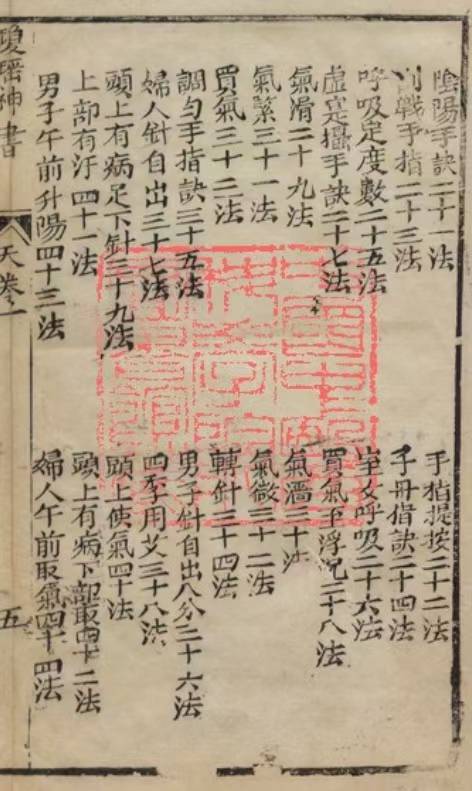 陰陽手訣二十一法
手指提按二十二法
戰手指二十三法
子母指訣二十四法
呼吸定度數二十五法
室女呼吸二十六法
虛寔攝手訣二十七法
買氣至浮沉二十八法
氣滑二十九法
氣濇三十法
氣緊三十一法
氣微三十二法
買氣三十三法
轉針三十四法
調勻手指訣三十五法
男子針自出八分三十六法
婦人針自出三十七法
四季用艾三十八法
頭上有病足下針三十九法
頭上使氣四十法
上部有汗四十一法
頭上有病下部取四十二法
男子午前升陽四十三法
婦人午前取氣四十四法
瓊瑤神書
天卷一
五